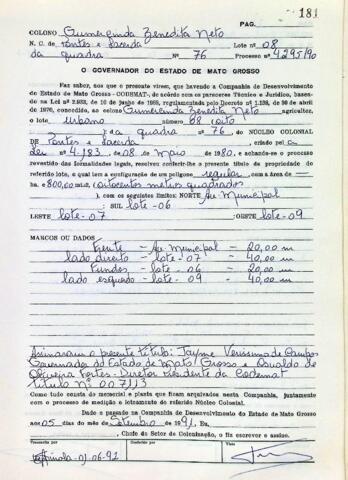 PAG. 181
COLONO Gumercinda Benedita Neto
N. C. de Pontes e Lacerda Lote nº 08
da quadra Nº 76 Processo nº 4295/90
O GOVERNADOR DO ESTADO DE MATO GROSSO
Faz saber, aos que o presente virem, que havendo a Companhia de Desenvolvimento
do Estado de Mato Grosso - CODEMAT-, de acordo com os pareceres Técnico e Jurídico, baseados
na Lei nº 2.933, de 10 de junho de 1969, regulamentada pelo Decreto nº 1.138, de 30 de abril
de 1970, concedido, ao colono Gumercinda Benedita Neto agricultor,
o lote urbano número 08 oito
da quadra nº 76, do NÚCLEO COLONIAL
DE Pontes e Lacerda, criado pela
Lei nº 4.183, de 08 de Maio de 1980, e achando-se o processo
revestido das formalidades legais, resolveu conferir-lhe o presente título de propriedade do
referido lote, o qual tem a configuração de um polígono regular com a área de —
ha. e 800,00 m2, (oitocentos metros quadrados
), com os seguintes limites: NORTE Av. Municipal
: SUL lote-06
LESTE lote-07 :OESTE lote-09
MARCOS OU DADOS
Frente - Av. Municipal - 20,00 m
lado direito - lote-07 - 40,00 m
Fundos - lote-06 - 20,00 m
lado esquerdo - lote-09 - 40,00 m
Assinaram o presente título: Jayme Verissimo de Campos
Governador do Estado de Mato Grosso e Osvaldo de
Oliveira Fortes - Diretor Presidente da Codemat
título Nº 007113
Como tudo consta do memorial e planta que ficam arquivados nesta Companhia, juntamente
com o processo de medição e loteamento do referido Núcleo Colonial.
Dado e passado na Companhia de Desenvolvimento do Estado de Mato Grosso
aos 05 dias do mês de Setembro de 1991, Eu,
, Chefe do Setor de Colonização, o fiz escrever e assino.
Transcrito por Conferido por Visto
01-06-92